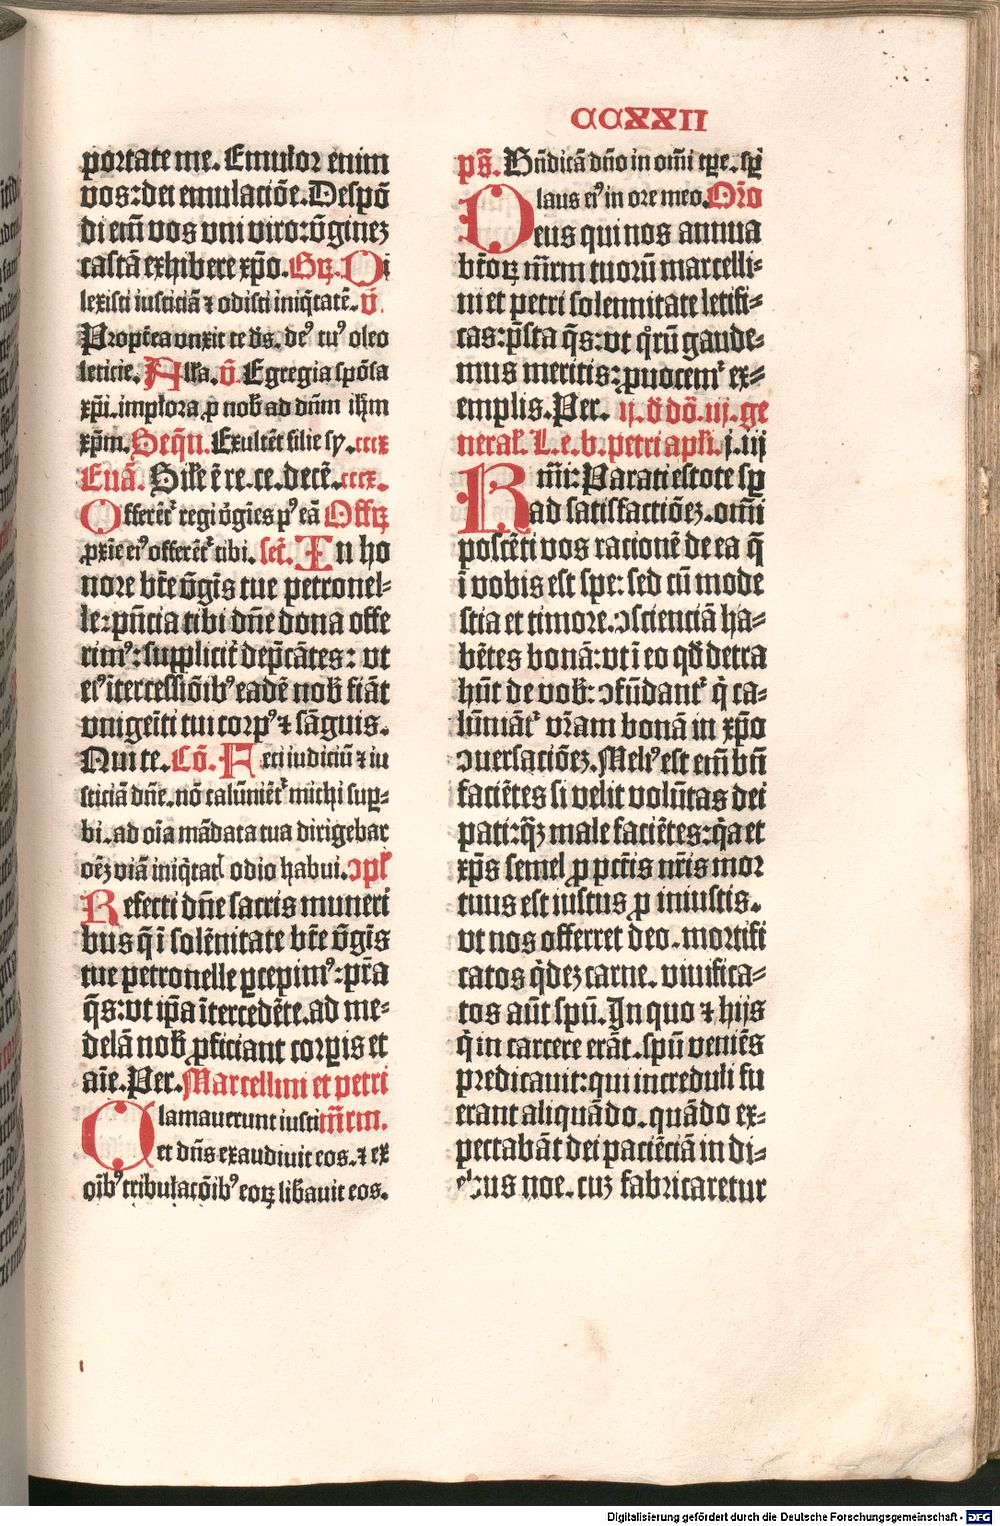 CCXXII
portate me. Emulor enim
vos: dei emulaciōe. Despō
di em̄ vos vni viro: v̄ginez
castā exhibere xp̄o. Grꝫ. Di
lexisti iusticiā ⁊ odisti iniq̄tatē. v̄.
Propt̄ea vnxit te ds̄. deꝰ tuꝰ oleo
leticie. Alla. v̄. Egregia spōsa
xp̄i. implora ꝓ nob̄ ad dn̄m ih̄m
xp̄m. Seqn̄. Exultēt filie sy. cccx
Euā. Sile ē re. ce. decē. cccx.
Offerēt᷑ regi v̄gīes pꝰ eā Offꝝ
ꝓxīe eiꝰ offerēt᷑ tibi. sec̄. In ho
nore bt̄e v̄gīs tue petronel-
le: pn̄cia tibi dn̄e dona offe
rimꝰ: supplicit᷑ dep̄cātes: vt
eiꝰ ītercessiōibꝰ eadē nob̄ fiāt
vnigeīti tui corpꝰ ⁊ sāguis.
Qui te. Cō. Feci iudiciū ⁊ iu
sticiā dn̄e. nō calūniēt᷑ michi suꝑ-
bi. ad oīa mādata tua dirigebar
oēz viā iniq̄tatꝭ odio habui. ꝯpl̄
Refecti dn̄e sacris muneri
bus q̄ ī solēnitate bt̄e v̄gīs
tue petronelle ꝑcepimꝰ: pr̄a
q̄s: vt ip̄a ītercedēte. ad me-
delā nob̄ ꝓficiant corꝑis et
aīe. Per. Marcellini et petri
Clamauerunt iusti mr̄m.
et dn̄s exaudiuit eos. ⁊ ex
oībꝰ tribulacōibꝰ eoꝝ libauit eos.
ps̄. Bn̄dicā dn̄o in om̄i tꝑe. sꝑ
laus eiꝰ in ore meo. Or̄o
Deus qui nos annua
bt̄oꝝ mr̄m tuorū marcelli-
ni et petri solennitate letifi-
cas: p̄sta q̄s: vt q̊rū gaude-
mus meritis: ꝓuocem᷑ ex-
emplis. Per. ij. d̄ dō. iij. ge
neral̄. L. e. b. petri apl̄i. j. iij
Kr̄mi: Parati estote sꝑ
ad satisfactiōez. om̄i
poscēti vos racionē de ea q̄
ī vobis est spe: sed cū mode
stia et timore. ꝯscienciā ha-
bētes bonā: vt ī eo qd̄ detra
hūt de vob̄: ꝯfūdant᷑ q̄ ca-
lūniāt᷑ vr̄am bonā in xp̄o
ꝯuersaciōez. Meliꝰ est em̄ bn̄
faciētes si velit volūtas dei
pati: q̄ꝫ male faciētes: q̄a et
xp̄s semel ꝓ pctīs nr̄is mor
tuus est iustus ꝓ iniustis.
vt nos offerret deo. mortifi
catos q̄dez carne. viuifica-
tos aūt spū. In quo ⁊ hijs
q̄ in carcere erāt. spū veniēs
predicauit: qui increduli fu
erant aliquādo. quādo ex-
pectabāt dei paciēciā in di-
ebus noe. cuz fabricaretur
Digitalisierung gefördert durch die Deutsche Forschungsgemeinschaft - DFG